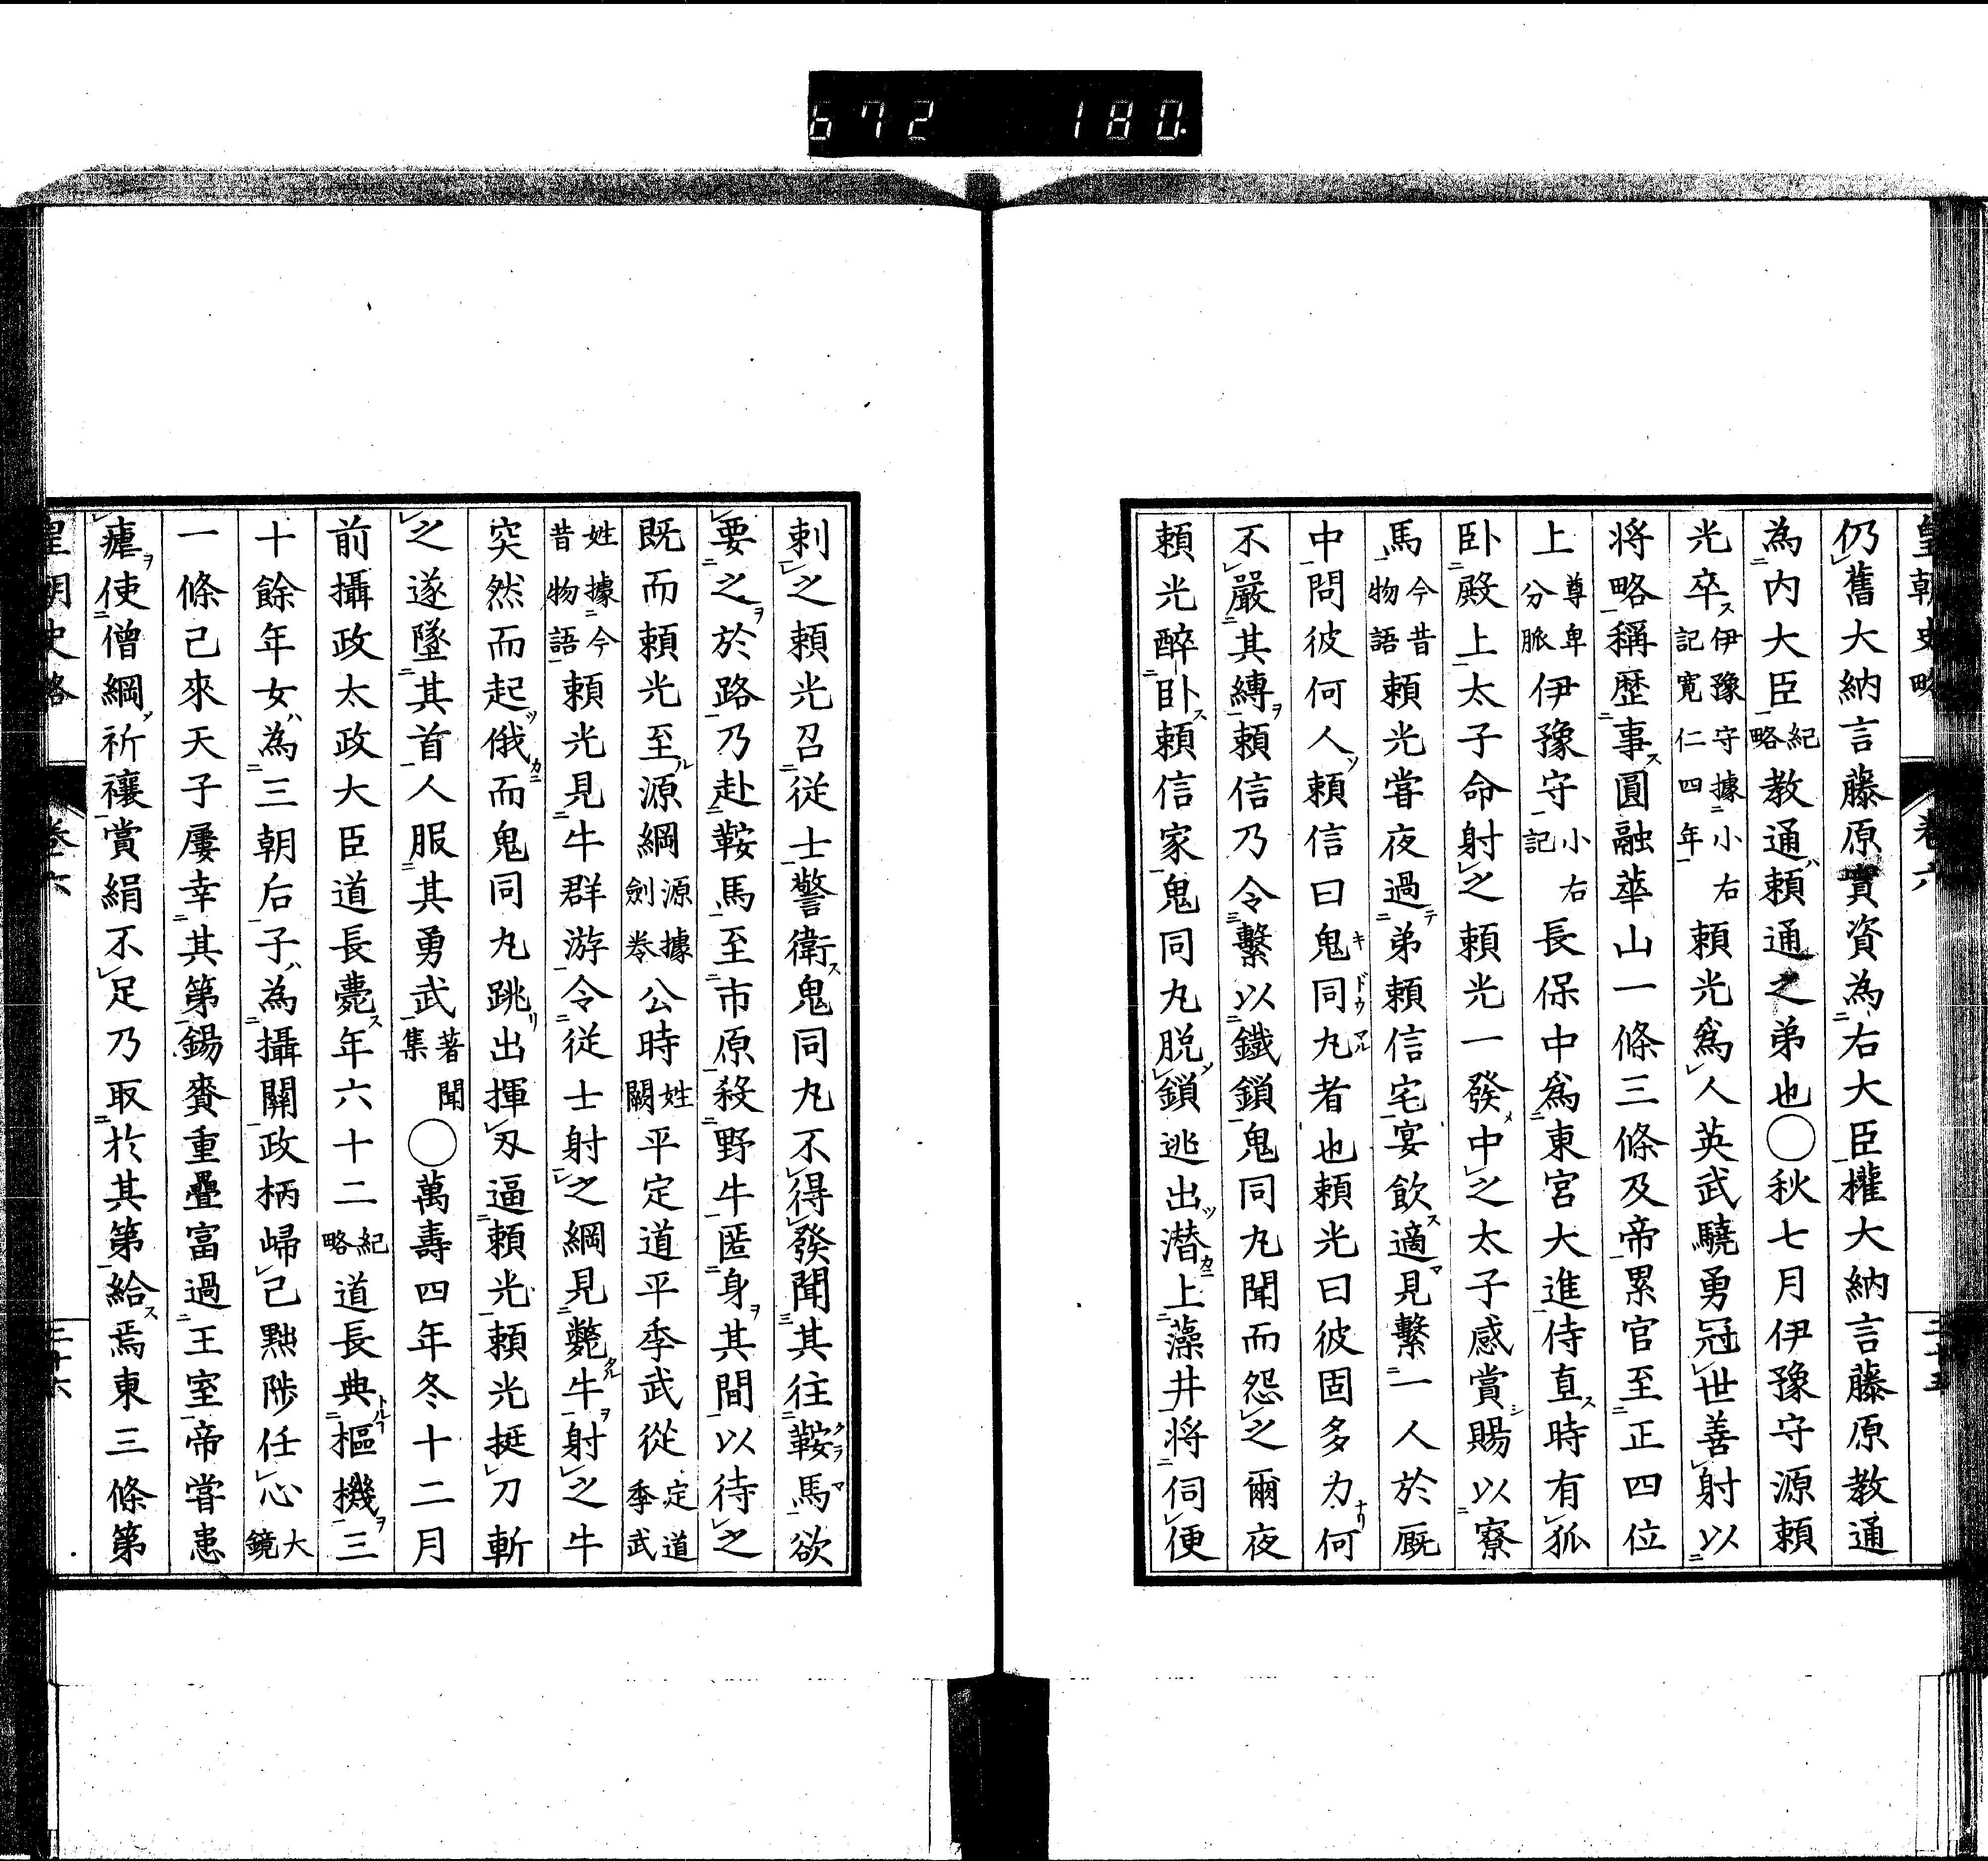 672 180
皇朝史略 卷六 二十五
仍舊大納言藤原實資為右大臣權大納言藤原教通
為內大臣紀略教通賴通之弟也〇秋七月伊豫守源賴
光卒伊豫守據小右記寬仁四年賴光爲人英武驍勇冠世善射以
将略稱歷事圓融華山一條三條及帝累官至正四位
上尊卑分脈伊豫守小右記長保中爲東宮大進侍直時有狐
卧殿上太子命射之賴光一發中之太子感賞賜以寮
馬今昔物語賴光嘗夜過弟賴信宅宴飲適見繫一人於厩
中問彼何人賴信曰鬼同丸者也賴光曰彼固多力何
不嚴其縛賴信乃令繫以鐵鎖鬼同丸聞而怨之爾夜
賴光醉卧賴信家鬼同丸脫鎖逃出潛上藻井将伺便
刺之賴光召從士警衛鬼同丸不得發聞其往鞍馬欲
要之於路乃赴鞍馬至市原殺野牛匿身其間以待之
既而賴光至源綱源據劍卷公時姓闕平定道平季武從定道季武
姓據今昔物語賴光見牛群游令從士射之綱見斃牛射之牛
突然而起俄而鬼同丸跳出揮刃逼賴光賴光挺刀斬
之遂墜其首人服其勇武著聞集〇萬壽四年冬十二月
前攝政太政大臣道長薨年六十二紀略道長典樞機三
十餘年女為三朝后子為攝關政柄歸己黜陟任心大鏡
一條已來天子屢幸其第錫賚重疊富過王室帝嘗患
瘧使僧綱祈禳賞絹不足乃取於其第給焉東三條第
皇朝史略 卷六 二十六